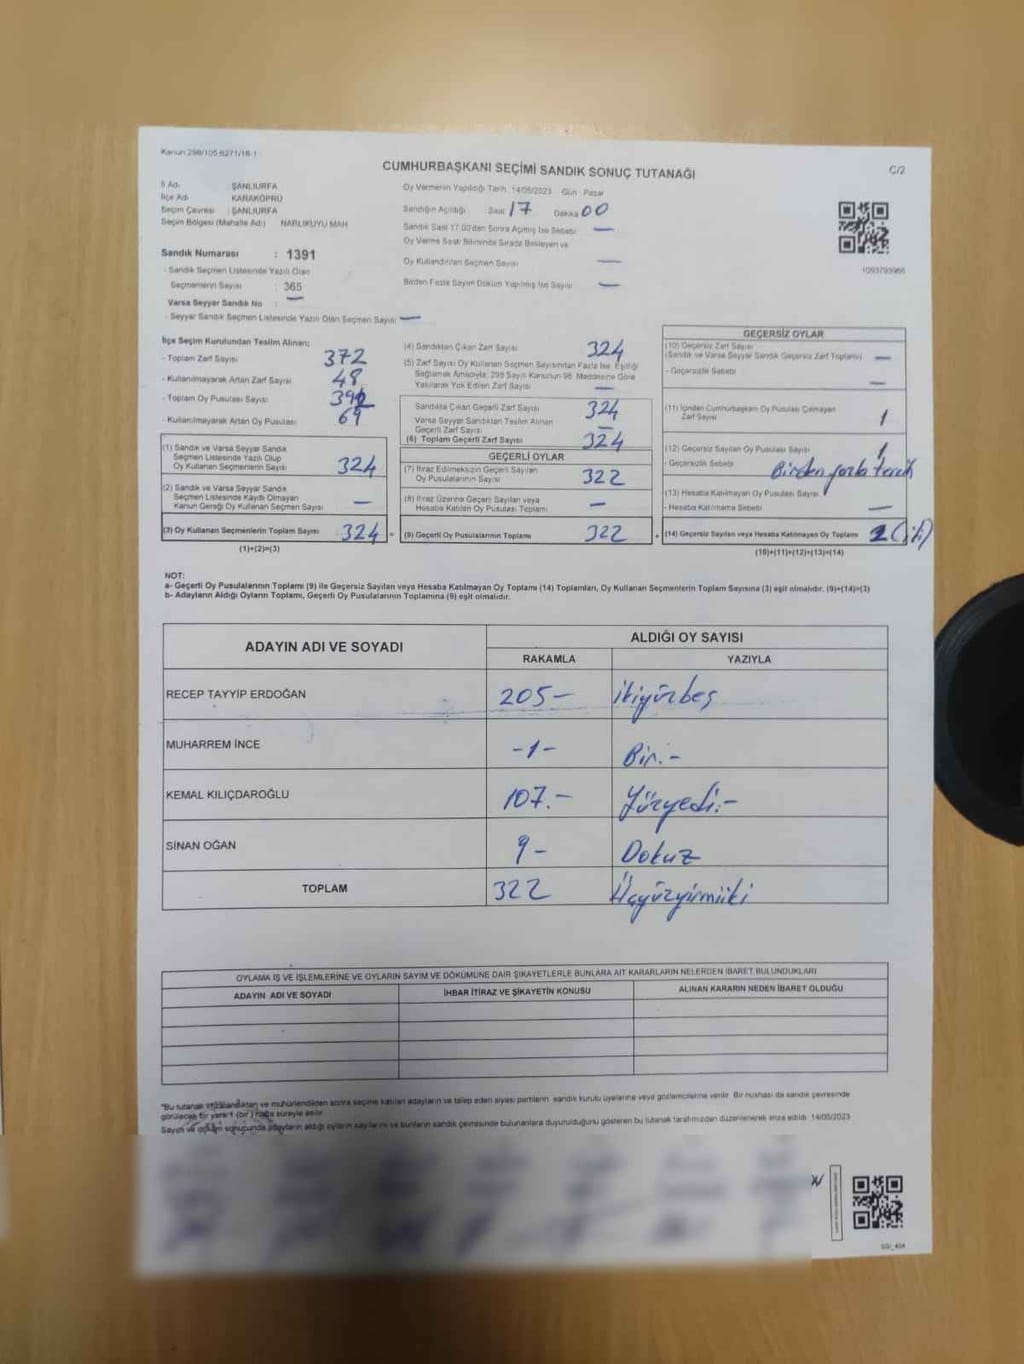 Kanun 298/105-6271/16-1
CUMHURBAŞKANI SEÇİMİ SANDIK SONUÇ TUTANAĞI
C/2
İl Adı ŞANLIURFA
İlçe Adı KARAKÖPRÜ
Seçim Çevresi : ŞANLIURFA
Seçim Bölgesi (Mahalle Adı) NARLIKUYU MAH
Oy Vermenin Yapıldığı Tarih 14/05/2023 Gün Pazar
Sandığın Açıldığı Saat 17 Dakika 00
Sandık Saat 17.00'den Sonra Açılmış İse Sebebi —
Oy Verme Saati Bitiminde Sırada Bekleyen ve
Oy Kullandırılan Seçmen Sayısı —
Birden Fazla Sayım Döküm Yapılmış İse Sayısı —
1093793966
Sandık Numarası : 1391
- Sandık Seçmen Listesinde Yazılı Olan
Seçmenlerin Sayısı : 365
Varsa Seyyar Sandık No : —
- Seyyar Sandık Seçmen Listesinde Yazılı Olan Seçmen Sayısı —
İlçe Seçim Kurulundan Teslim Alınan;
- Toplam Zarf Sayısı 372
- Kullanılmayarak Artan Zarf Sayısı 48
- Toplam Oy Pusulası Sayısı
- Kullanılmayarak Artan Oy Pusulası 69
(1) Sandık ve Varsa Seyyar Sandık
Seçmen Listesinde Yazılı Olup
Oy Kullanan Seçmenlerin Sayısı 324
(2) Sandık ve Varsa Seyyar Sandık
Seçmen Listesinde Kayıtlı Olmayan
Kanun Gereği Oy Kullanan Seçmen Sayısı —
(3) Oy Kullanan Seçmenlerin Toplam Sayısı 324 =
(1)+(2)=(3)
(4) Sandıktan Çıkan Zarf Sayısı 324
(5) Zarf Sayısı Oy Kullanan Seçmen Sayısından Fazla İse, Eşitliği
Sağlamak Amacıyla; 298 Sayılı Kanunun 98. Maddesine Göre
Yakılarak Yok Edilen Zarf Sayısı —
Sandıkta Çıkan Geçerli Zarf Sayısı 324
Varsa Seyyar Sandıktan Teslim Alınan
Geçerli Zarf Sayısı —
(6) Toplam Geçerli Zarf Sayısı 324
GEÇERLİ OYLAR
(7) İtiraz Edilmeksizin Geçerli Sayılan
Oy Pusulalarının Sayısı 322
(8) İtiraz Üzerine Geçerli Sayılan veya
Hesaba Katılan Oy Pusulası Toplamı —
(9) Geçerli Oy Pusulalarının Toplamı 322 +
GEÇERSİZ OYLAR
(10) Geçersiz Zarf Sayısı
(Sandık ve Varsa Seyyar Sandık Geçersiz Zarf Toplamı) —
- Geçersizlik Sebebi —
(11) İçinden Cumhurbaşkanı Oy Pusulası Çıkmayan
Zarf Sayısı 1
(12) Geçersiz Sayılan Oy Pusulası Sayısı 1
- Geçersizlik Sebebi Birden fazla tercih
(13) Hesaba Katılmayan Oy Pusulası Sayısı
- Hesaba Katılmama Sebebi —
(14) Geçersiz Sayılan veya Hesaba Katılmayan Oy Toplamı 2 (iki)
(10)+(11)+(12)+(13)=(14)
NOT:
a- Geçerli Oy Pusulalarının Toplamı (9) ile Geçersiz Sayılan veya Hesaba Katılmayan Oy Toplamı (14) Toplamları, Oy Kullanan Seçmenlerin Toplam Sayısına (3) eşit olmalıdır. (9)+(14)=(3)
b- Adayların Aldığı Oyların Toplamı, Geçerli Oy Pusulalarının Toplamına (9) eşit olmalıdır.
ADAYIN ADI VE SOYADI
ALDIĞI OY SAYISI
RAKAMLA YAZIYLA
RECEP TAYYİP ERDOĞAN 205— İkiyüzbeş
MUHARREM İNCE -1- Bir.-
KEMAL KILIÇDAROĞLU 107.- Yüzyedi.-
SİNAN OĞAN 9- Dokuz
TOPLAM 322 Üçyüzyirmiiki
OYLAMA İŞ VE İŞLEMLERİNE VE OYLARIN SAYIM VE DÖKÜMÜNE DAİR ŞİKAYETLERLE BUNLARA AİT KARARLARIN NELERDEN İBARET BULUNDUKLARI
ADAYIN ADI VE SOYADI İHBAR İTİRAZ VE ŞİKAYETİN KONUSU ALINAN KARARIN NEDEN İBARET OLDUĞU
"Bu tutanak imzalandıktan ve mühürlendikten sonra seçime katılan adayların ve talep eden siyasi partilerin sandık kurulu üyelerine veya gözlemcilerine verilir. Bir nüshası da sandık çevresinde
görülecek bir yere 1 (bir) hafta süreyle asılır.
Sayım ve döküm sonucunda adayların aldığı oyların sayılarını ve bunların sandık çevresinde bulunanlara duyurulduğunu gösteren bu tutanak tarafımızdan düzenlenerek imza edildi. 14/05/2023